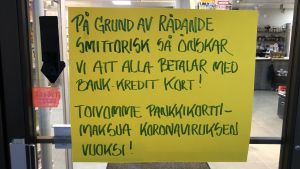 PÅ GRUND AV RÅDANDE
SMITTORISK SÅ ÖNSKAR
VI ATT ALLA BETALAR MED
BANK-KREDIT KORT!
TOIVOMME PANKKIKORTTI-
MAKSUA KORONAVIRUKSEN
VUOKSI!